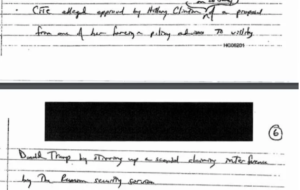 CITE alleged approved by Hillary Clinton of a proposal
from one of her foreign policy advisors to vilify
HC06201
6
Donald Trump by stirring up a scandal claiming interference
by the Russian security service